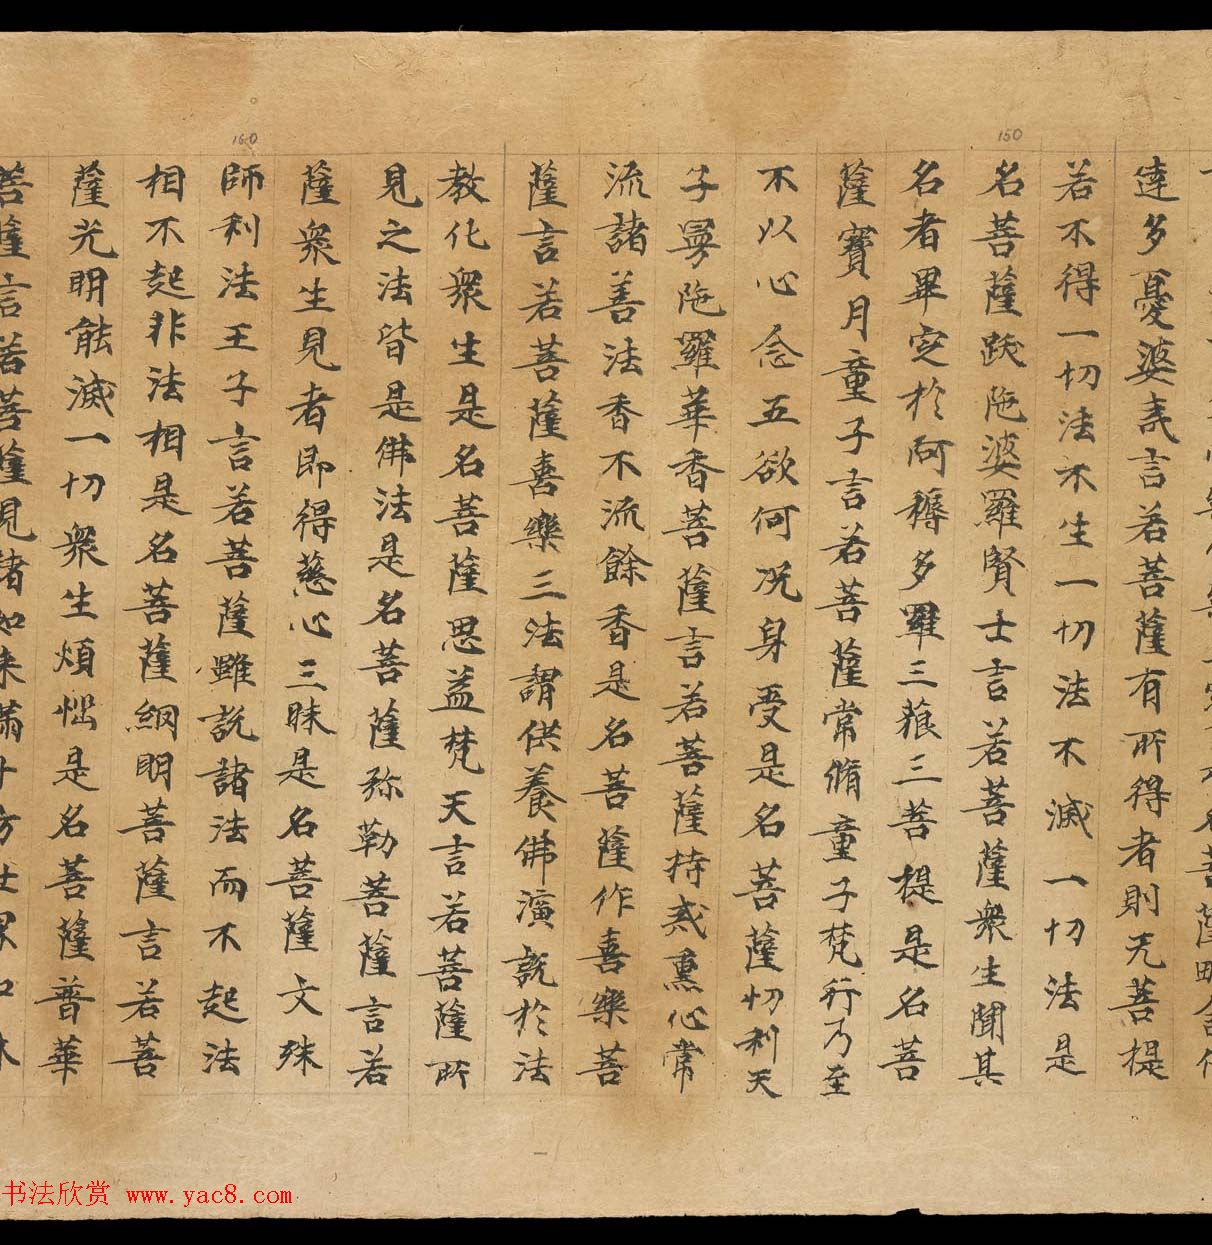 達多憂婆夷言若菩薩有所得者則无菩提
若不得一切法不生一切法不滅一切法是
150
名菩薩跋陁婆羅賢士言若菩薩衆生聞其
名者畢定於阿耨多羅三藐三菩提是名菩
薩寳月童子言若菩薩常脩童子梵行乃至
不以心念五欲何况身受是名菩薩忉利天
子曼陁羅華香菩薩言若菩薩持戒熏心常
流諸善法香不流餘香是名菩薩作喜樂菩
薩言若菩薩喜樂三法謂供養佛演說於法
教化衆生是名菩薩思益梵天言若菩薩所
見之法皆是佛法是名菩薩弥勒菩薩言若
薩衆生見者即得慈心三昧是名菩薩文殊
160
師利法王子言若菩薩雖説諸法而不起法
相不起非法相是名菩薩網明菩薩言若菩
薩光明能滅一切衆生煩惱是名菩薩普華
菩薩言若菩薩見諸如来滿十方世界如林
书法欣赏 www.yac8.com